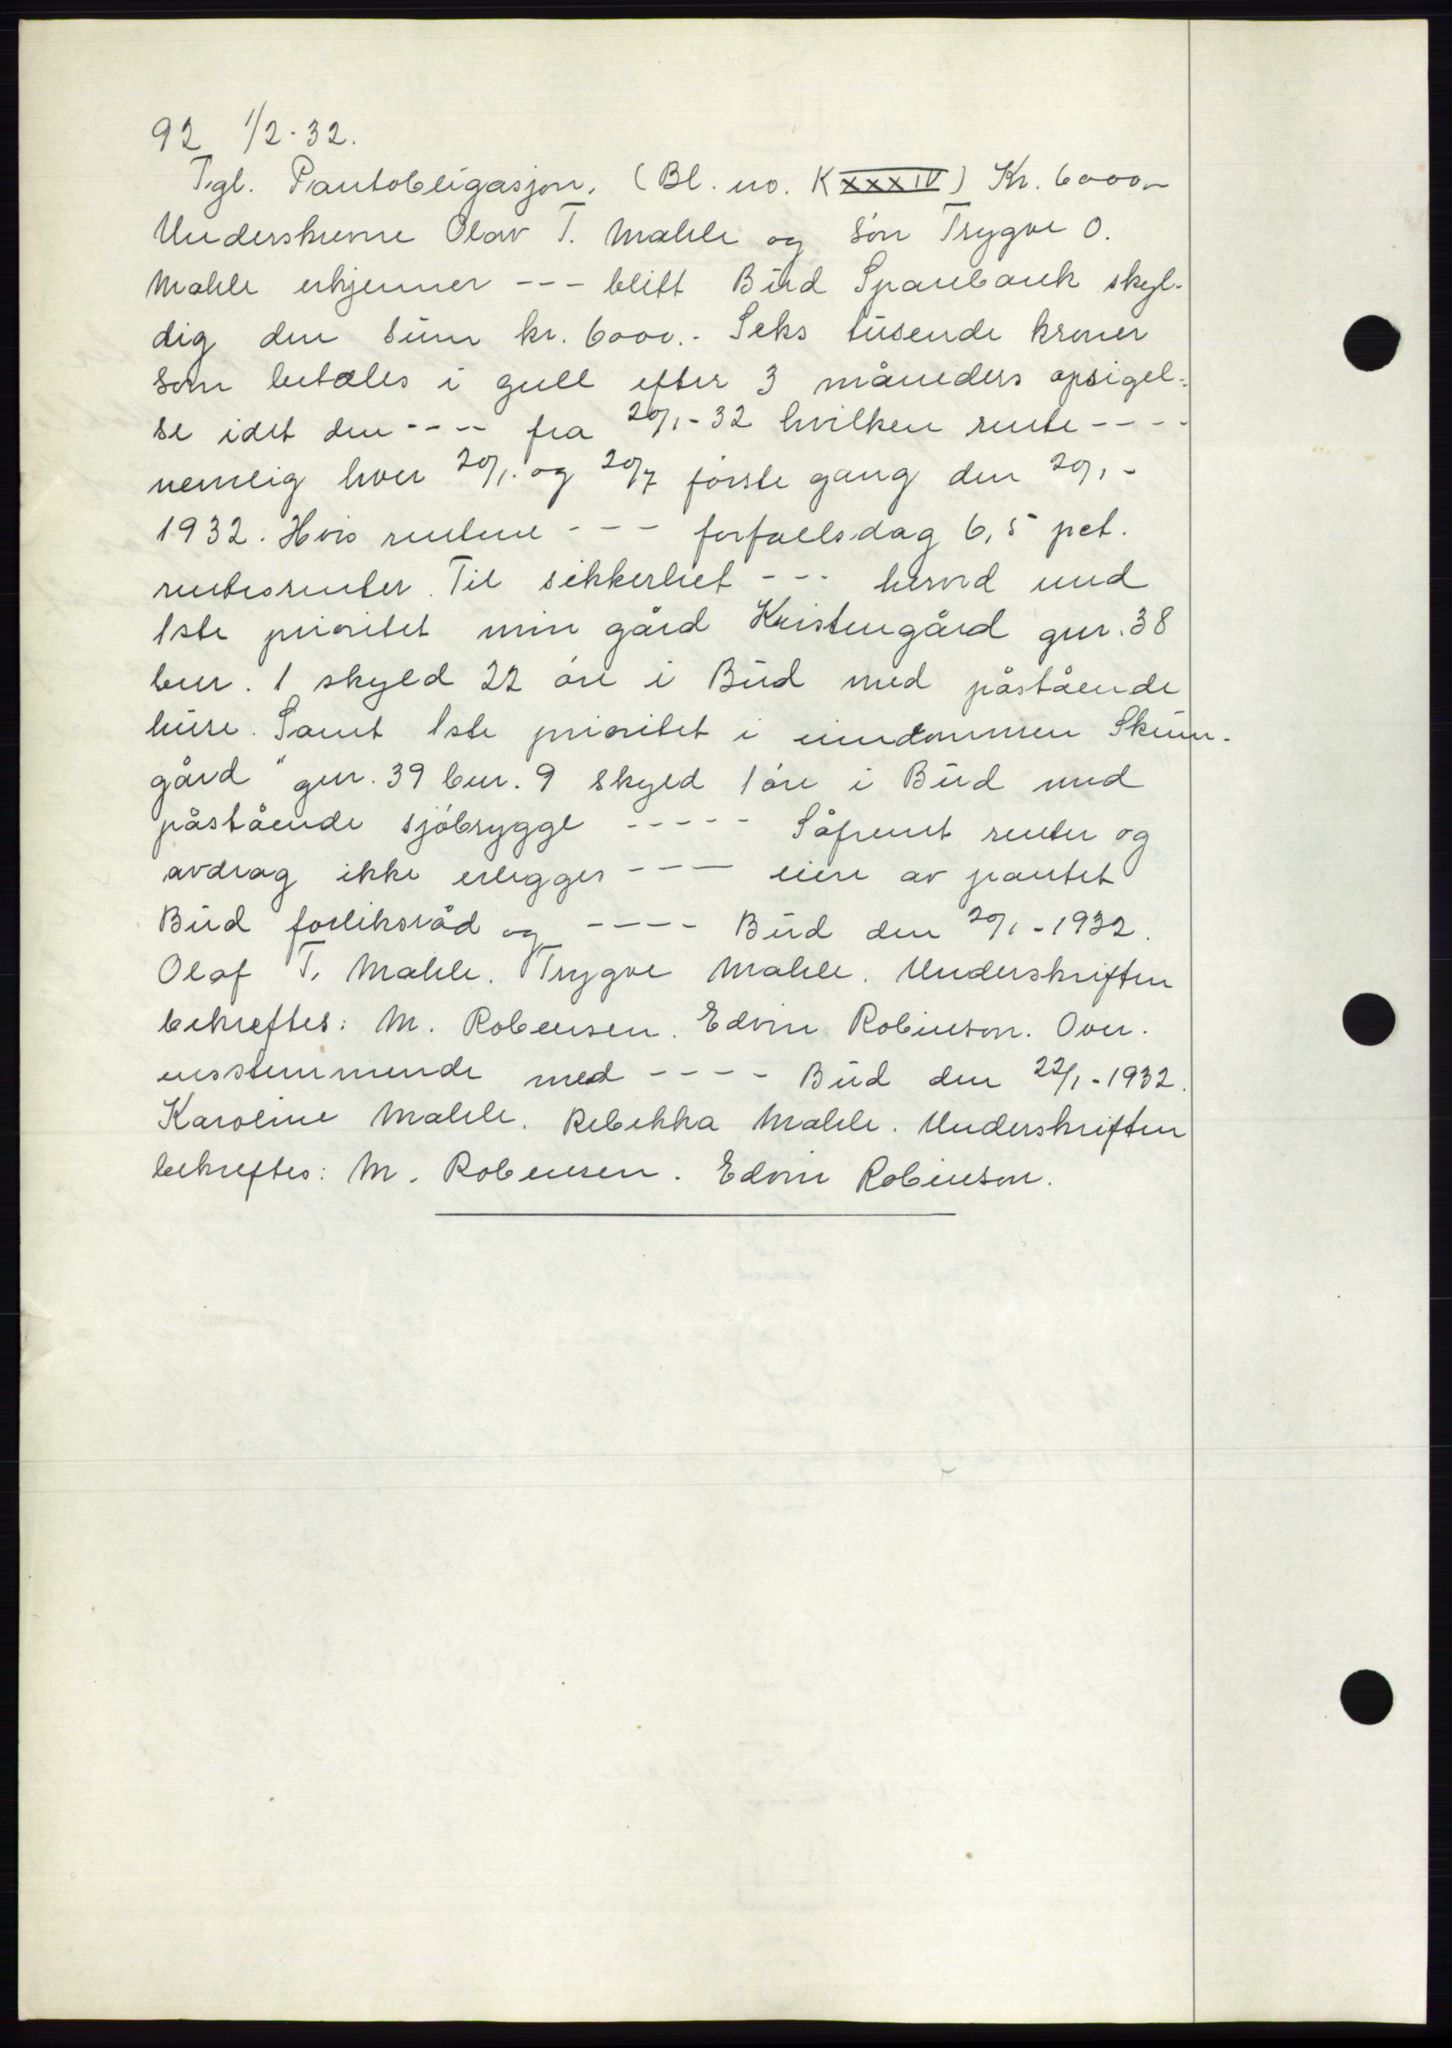 92 1/2-32.
Tgl. Pantobligasjon. (Bl. no. K XXXIV) Kr. 6000.-
Underskrevne Olav T. Mahle og søn Trygve O.
Mahle erkjenner --- blitt Bud Sparebank skyl-
dig den sum kr. 6000.- Seks tusende kroner
som betales i gull efter 3 måneders opsigel-
se idet den ---- fra 20/1-32 hvilken rente ----
nemlig hver 20/1. og 20/7 første gang den 20/1-
1932. Hvis rentene --- forfallsdag 6,5 pct.
rentesrenter. Til sikkerhet --- herved med
1ste prioritet min gård Kristengård gnr. 38
bnr. 1 skyld 22 øre i Bud med påstående
huse. Samt 1ste prioritet i eiendommen Skun-
gård" gnr. 39 bnr. 9 skyld 1 øre i Bud med
påstående sjøbrygge ----- Såfremt renter og
avdrag ikke erlegges ---- eiere av pantet
Bud forliksråd og ---- Bud den 20/1-1932.
Olaf T. Mahle. Trygve Mahle. Underskriften
bekreftes: M. Robensen. Edvin Robinson. Over-
ensstemmende med ---- Bud den 22/1-1932.
Karoline Mahle. Rebekka Mahle. Underskriften
bekreftes: M. Robensen. Edvin Robinson.